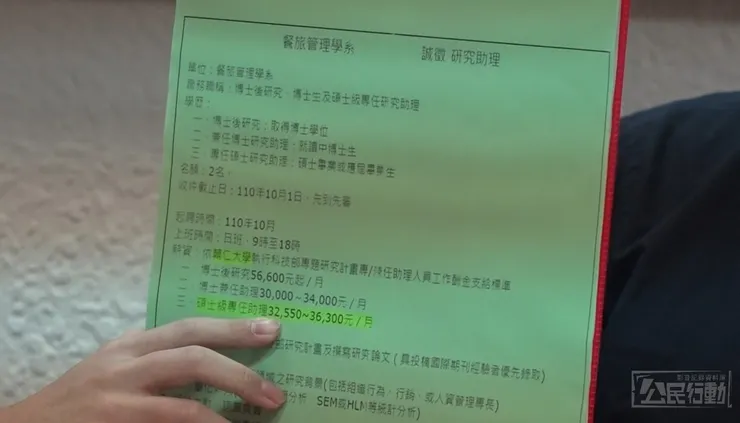 餐旅管理學系 誠徵 研究助理
單位:餐旅管理學系
職務職稱:博士後研究、博士生及碩士級專任研究助理
學歷:
一、博士後研究:取得博士學位
二、兼任博士研究助理:就讀中博士生
三、專任碩士研究助理:碩士畢業或應屆畢業生
名額:2名。
收件截止日:110年10月1日,先到先審
起聘時間:110年10月
上班時間:日班,9時至18時
薪資:依輔仁大學執行科技部專題研究計畫專/兼任助理人員工作酬金支給標準
一、博士後研究56,600元起/月
二、博士兼任助理30,000~34,000元/月
三、碩士級專任助理32,550~36,300元/月
部研究計畫及撰寫研究論文(具投稿國際期刊經驗者優先錄取)
之研究背景(包括組織行為、行銷、或人資管理專長)
分析 SEM或HLM等統計分析)
影音紀錄資料庫
公民行動